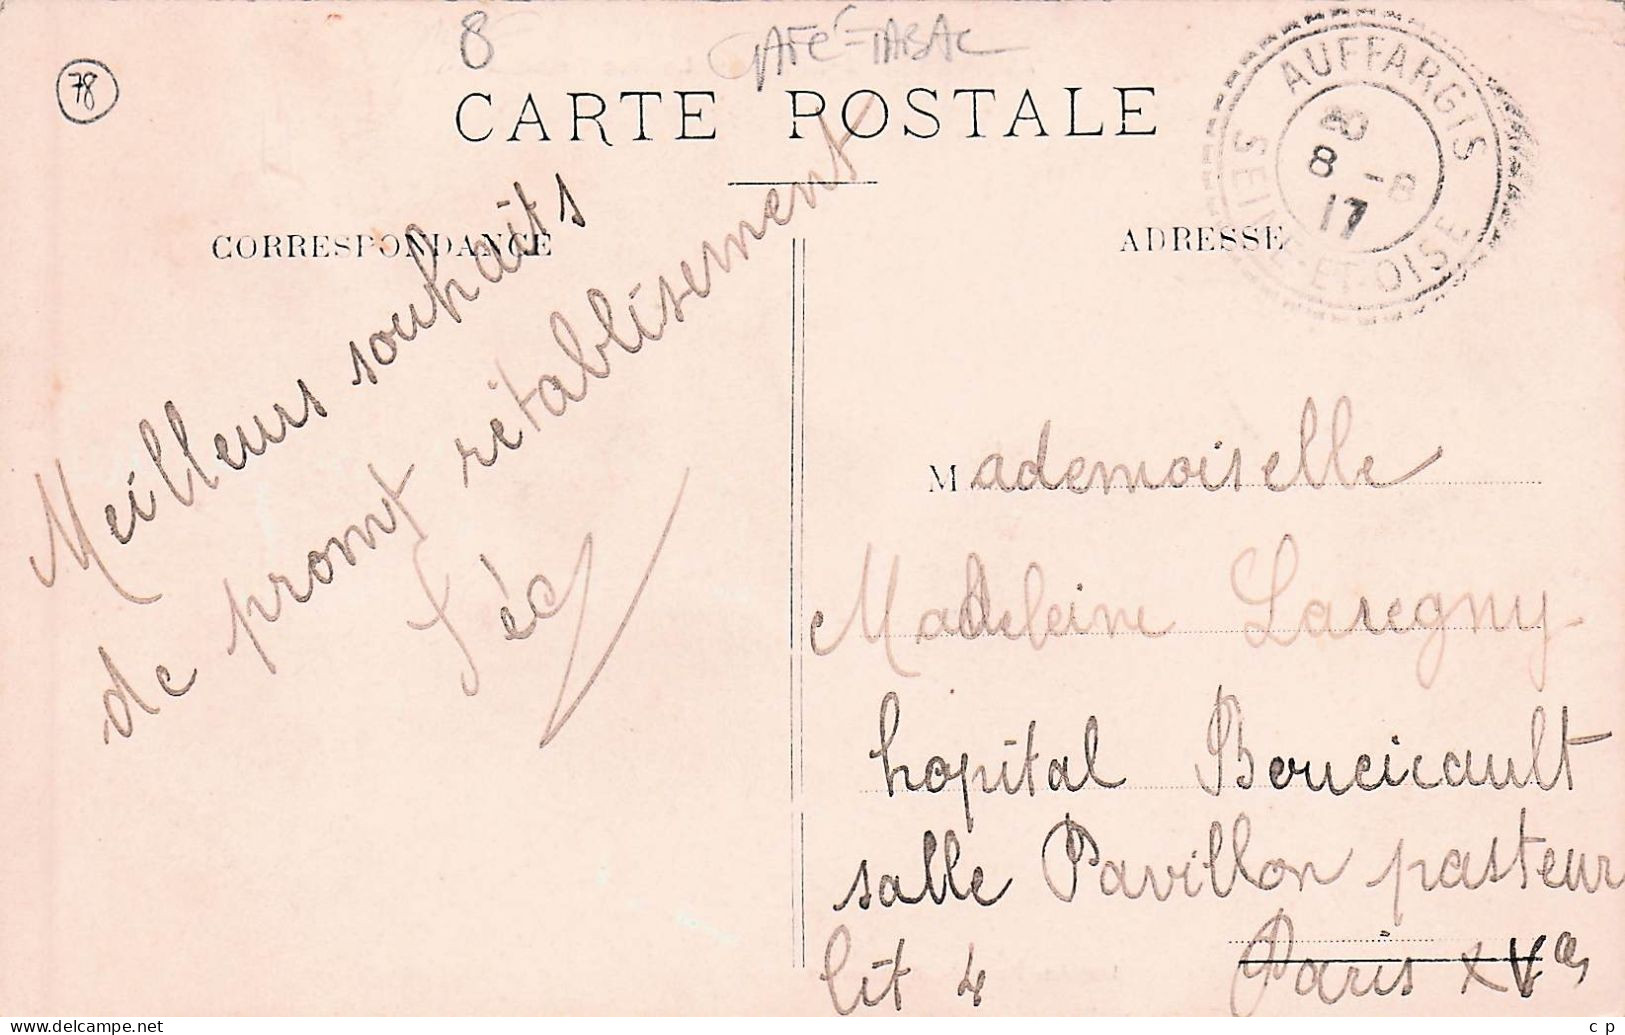 78
8
CAFÉ-TABAC
CARTE POSTALE
AUFFARGIS
SEINE-ET-OISE
20
8 -8
17
CORRESPONDANCE
ADRESSE
Meilleurs souhaits
de promt rétablisement
Mademoiselle
Madeleine Laregny
hopital Boucicault
salle Pavillon pasteur
lit 4 Paris XVe
c p